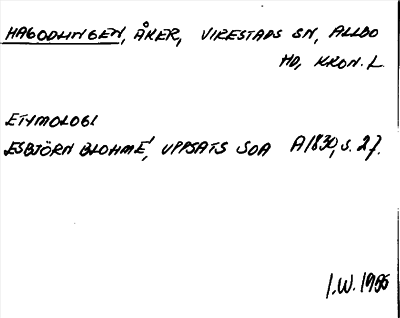 HAGODLINGEN, ÅKER, VIRESTADS SN, ALLBO
HD, KRON. L.
ETYMOLOGI
ESBJÖRN BLOHMÉ, UPPSATS SOA A1830, S. 27.
I.W. 1986